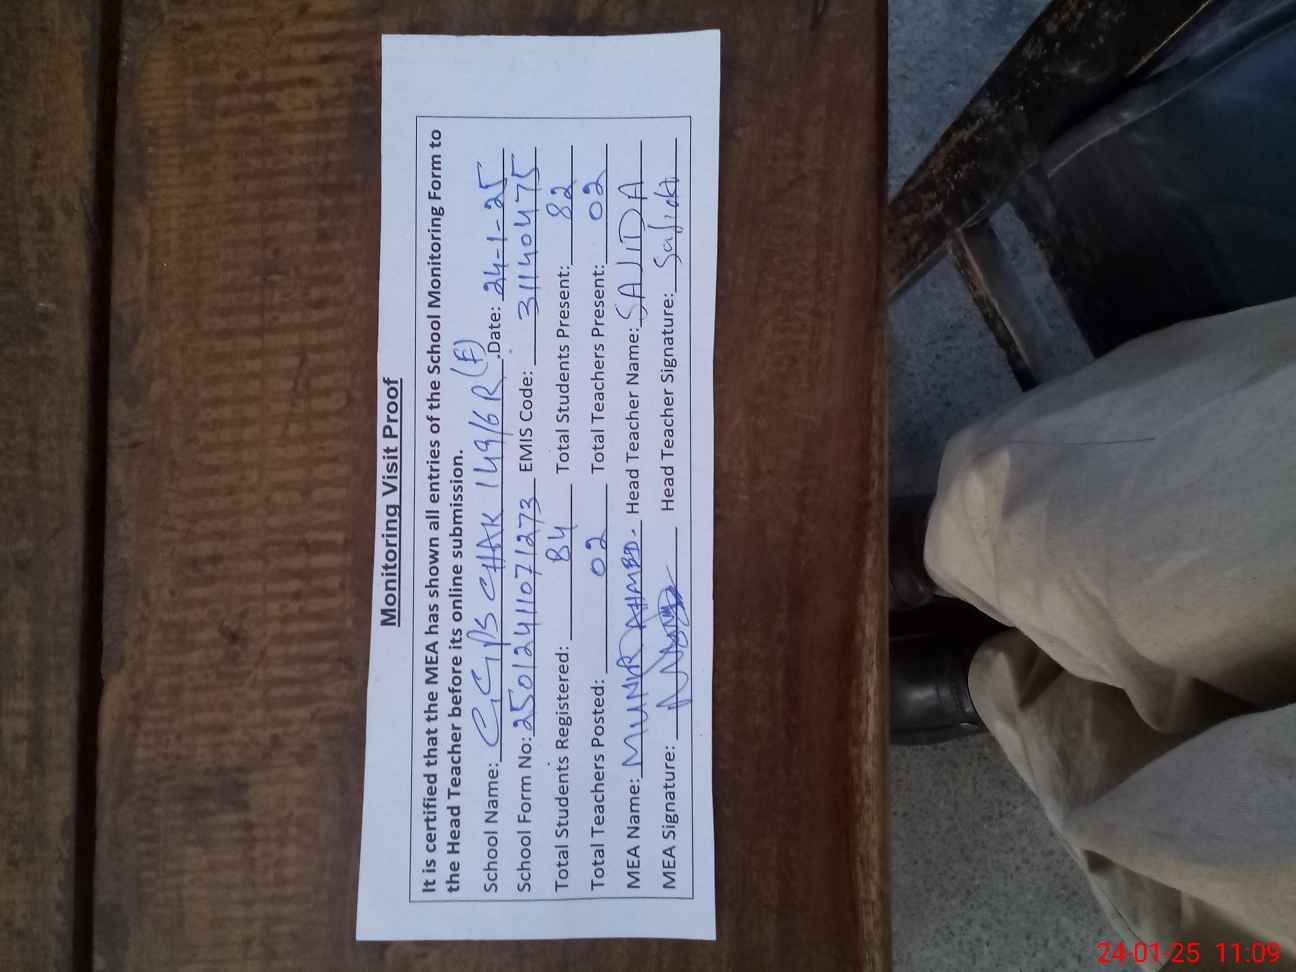 Monitoring Visit Proof
It is certified that the MEA has shown all entries of the School Monitoring Form to
the Head Teacher before its online submission.
School Name: GGPS CHAK 149/6R (F) Date: 24-1-25
School Form No: 25012411071273 EMIS Code: 31140475
Total Students Registered: 84 Total Students Present: 82
Total Teachers Posted: 02 Total Teachers Present: 02
MEA Name: MUNIR AHMED. Head Teacher Name: SAJIDA
MEA Signature: Head Teacher Signature: Sajida
24-01-25 11:09